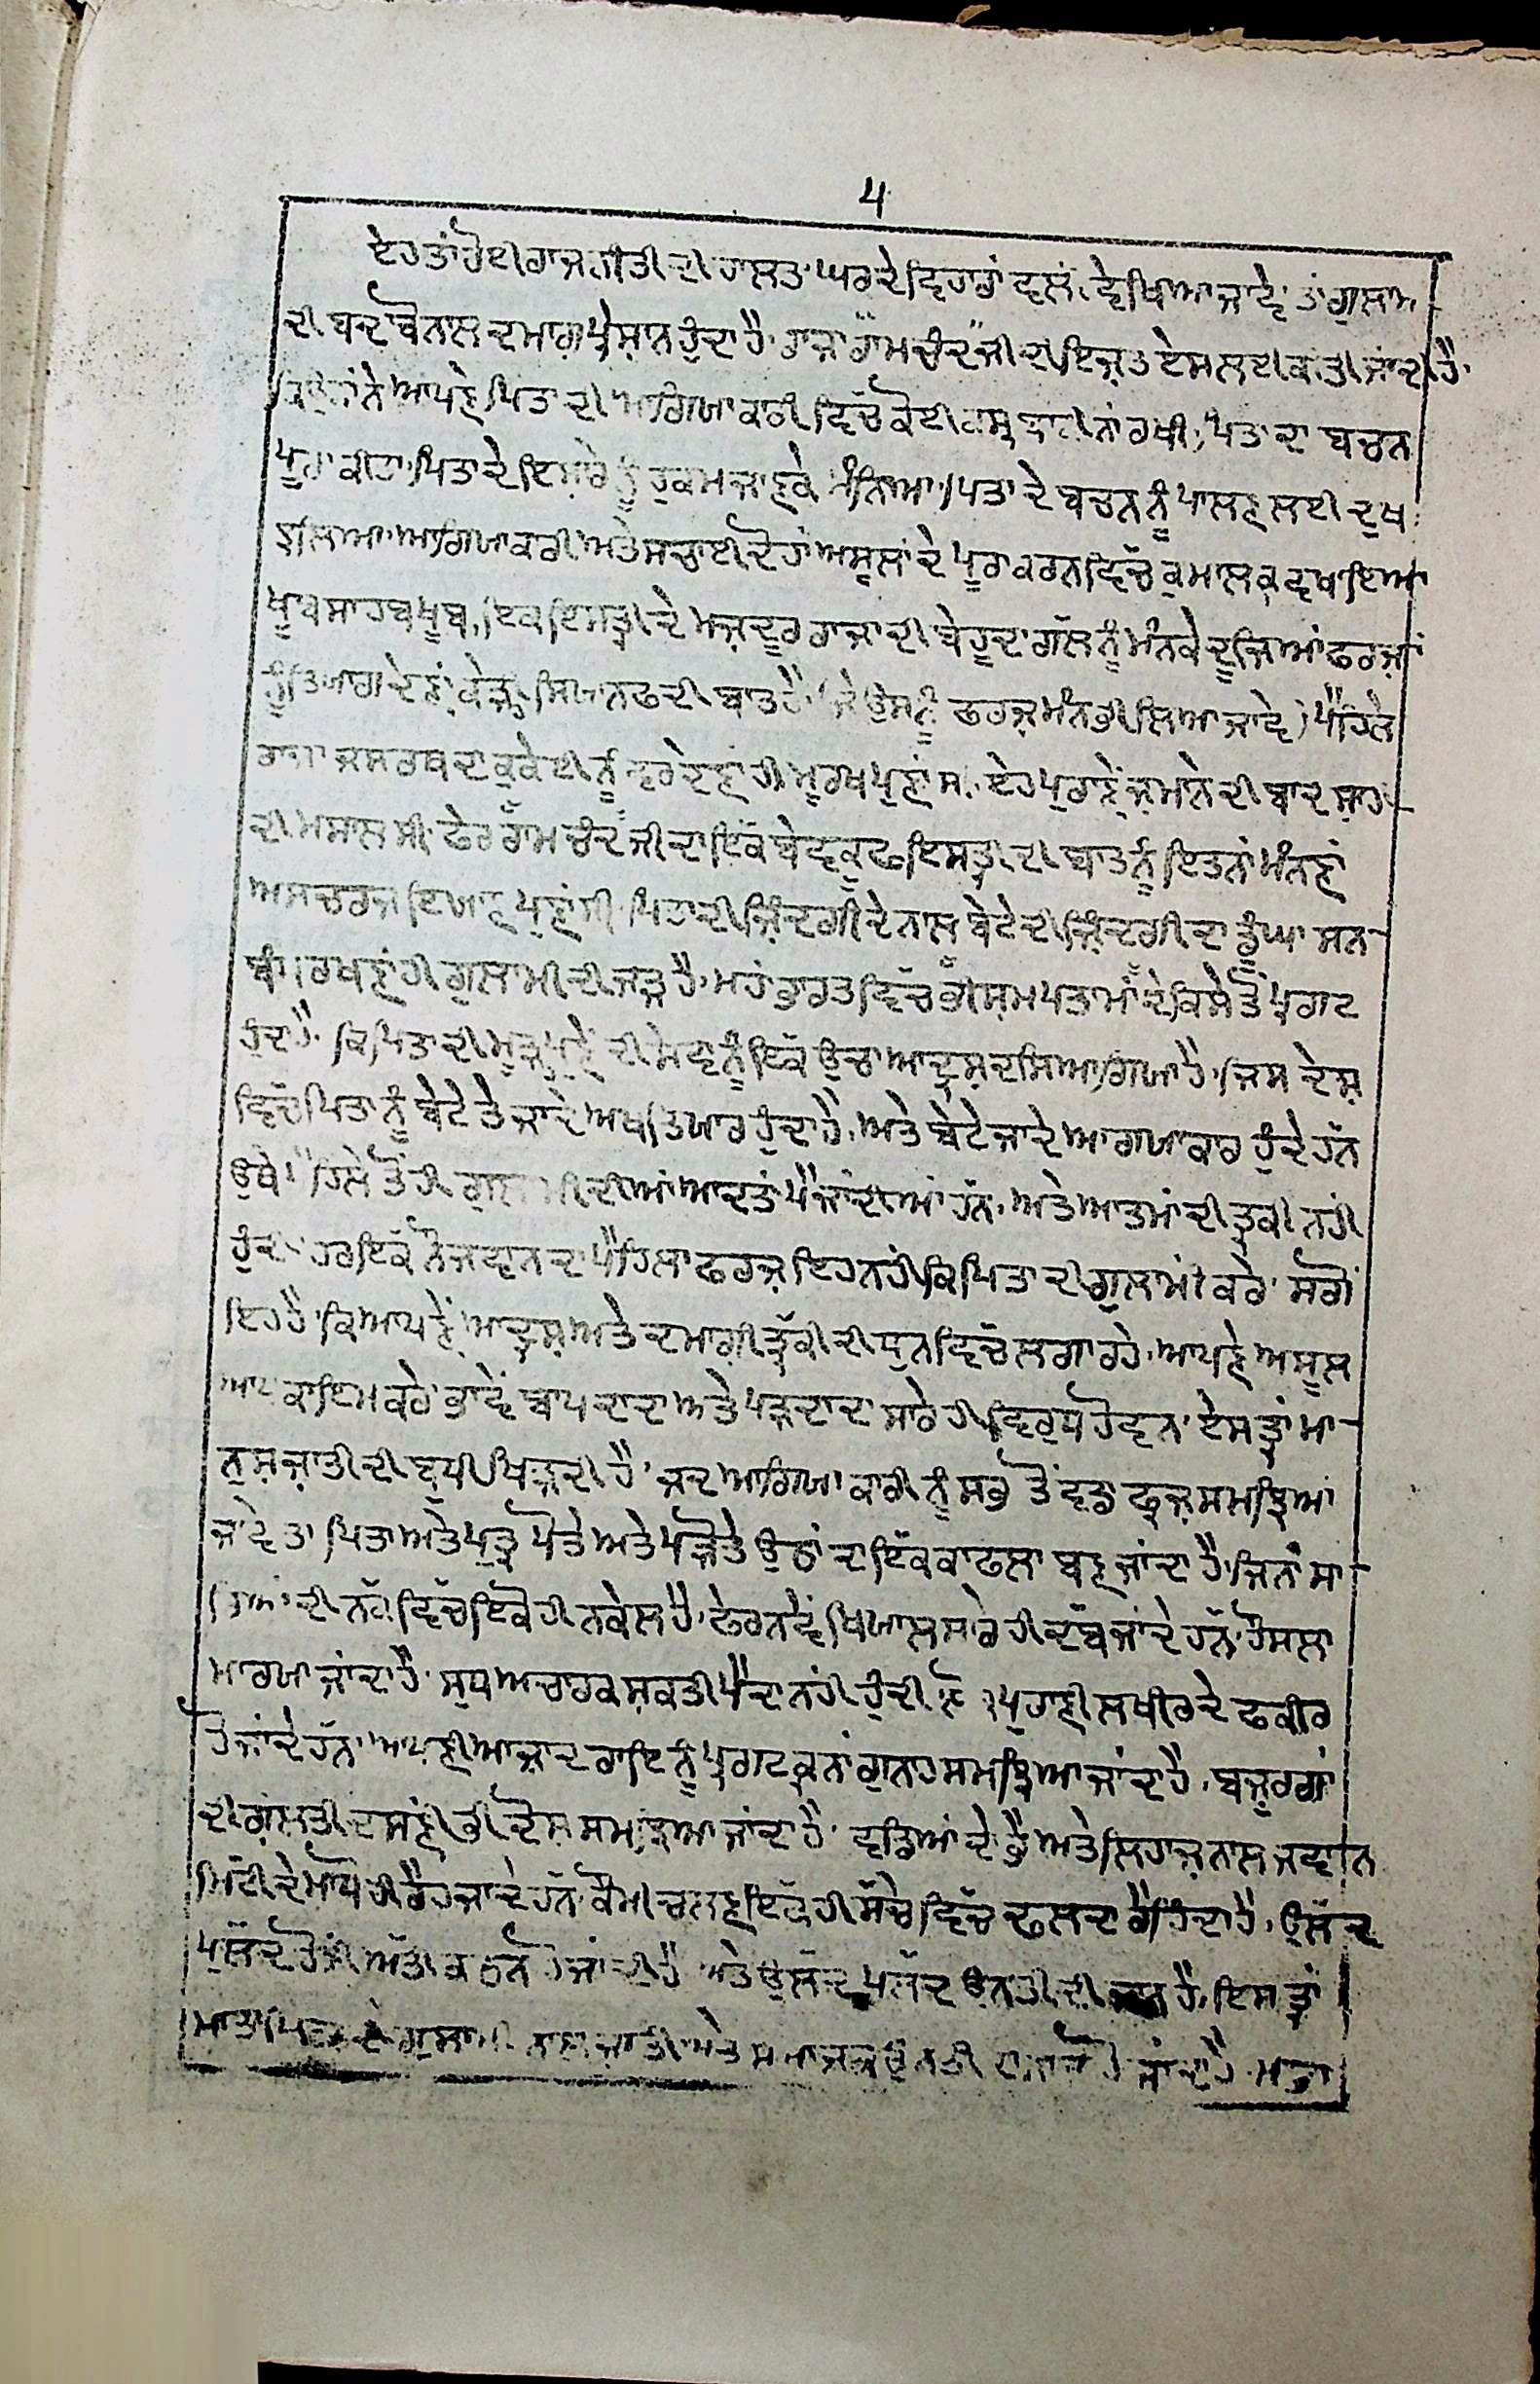 4
ਏਹ ਤਾਂ ਹੋਈ ਰਾਜਨੀਤੀ ਦੀ ਹਾਲਤ, ਘਰ ਦੇ ਵਿਹਾਰਾਂ ਵਲ ਦੇਖਿਆ ਜਾਵੇ ਤਾਂ ਗੁਲਾਮ
ਦੀ ਬਦਬੋ ਨਾਲ ਦਮਾਗ਼ ਪ੍ਰੇਸ਼ਾਨ ਹੁੰਦਾ ਹੈ, ਰਾਜਾ ਰਾਮ ਚੰਦਰ ਜੀ ਦੀ ਇਜ਼ਤ ਏਸ ਲਈ ਕੀਤੀ ਜਾਂਦੀ ਹੈ,
ਨੇ ਆਪਣੇ ਪਿਤਾ ਦੀ ਆਗਿਆਕਾਰੀ ਵਿੱਚ ਕੋਈ ਨਾਂ ਰਖੀ, ਪਿਤਾ ਦਾ ਬਚਨ
ਪੂਰਾ ਕੀਤਾ, ਪਿਤਾ ਦੇ ਇਸ਼ਾਰੇ ਨੂੰ ਹੁਕਮ ਜਾਣਕੇ ਮੰਨਿਆ, ਪਿਤਾ ਦੇ ਬਚਨ ਨੂੰ ਪਾਲਣ ਲਈ ਦੁਖ
ਝਲਿਆ, ਆਗਿਯਾਕਾਰੀ ਅਤੇ ਸਚਾਈ ਦੋਹਾਂ ਅਸੂਲਾਂ ਦੇ ਪੂਰਾ ਕਰਨ ਵਿੱਚ ਕਮਾਲ ਕਰ ਵਖਾਇਆ
ਖੂਬ ਸਾਹਬ ਖੂਬ, ਇਕ ਇਸਤ੍ਰੀ ਦੇ ਮਜ਼ਦੂਰ ਰਾਜਾ ਦੀ ਬੇਹੂਦਾ ਗੱਲ ਨੂੰ ਮੰਨਕੇ ਦੂਜਿਆਂ ਫਰਜ਼ਾਂ
ਨੂੰ ਤਿਯਾਗ ਦੇਣਾਂ ਕੇੜ੍ਹ ਸਿਯਾਨਫ ਦੀ ਬਾਤ ਹੈ (ਜੇ ਉਸਨੂੰ ਫਰਜ਼ ਮੰਨ ਭੀ ਲਿਆ ਜਾਵੇ) ਪੈਹਿਲੇ
ਰਾਜਾ ਜਸਰਥ ਦਾ ਕੁਕੇਈ ਨੂੰ ਵਰ ਦੇਣਾ ਹੀ ਮੂਰਖ ਪੁਣਾਂ ਸੀ, ਏਹ ਪੁਰਾਣੇਂ ਜ਼ਮਾਨੇ ਦੀ ਬਾਦਸ਼ਾਹ
ਦੀ ਮਸਾਲ ਸੀ, ਫੇਰ ਰਾਮ ਚੰਦਰ ਜੀ ਦਾ ਇੱਕ ਬੇਵਕੂਫ ਇਸਤ੍ਰੀ ਦੀ ਬਾਤ ਨੂੰ ਇਤਨਾਂ ਮੰਨਣਾਂ
ਅਸਚਰਜ ਇਯਾਣ ਪੁਣਾਂ ਸੀ, ਪਿਤਾ ਦੀ ਜ਼ਿੰਦਗੀ ਦੇ ਨਾਲ ਬੇਟੇ ਦੀ ਜ਼ਿੰਦਗੀ ਦਾ ਡੂੰਘਾ ਸਨ
ਬੰਧ ਰਖਣਾਂ ਹੀ ਗੁਲਾਮੀ ਦੀ ਜੜ੍ਹ ਹੈ, ਮਹਾਂ ਭਾਰਤ ਵਿੱਚ ਭੀਸ਼ਮ ਪਤਾਮਾਂ ਦੇ ਕਿਸੇ ਤੋਂ ਪ੍ਰਗਟ
ਹੁੰਦਾ ਹੈ, ਕਿ ਪਿਤਾ ਦੀ ਮੂੜ੍ਹ ਪੁਣੇਂ ਦੀ ਸੇਵਾ ਨੂੰ ਇੱਕ ਉਚਾ ਆਦ੍ਰਸ਼ ਦਸਿਆ ਗਿਯਾ ਹੈ, ਜਿਸ ਦੇਸ਼
ਵਿੱਚ ਪਿਤਾ ਨੂੰ ਬੇਟੇ ਤੇ ਜਾਦੇ ਅਖਤਿਯਾਰ ਹੁੰਦਾ ਹੈ, ਅਤੇ ਬੇਟੇ ਜਾਦੇ ਆਗਯਾਕਾਰ ਹੁੰਦੇ ਹਨ
ਉਥੇ ਪੈਹਿਲੇ ਤੋਂ ਹੀ ਗੁਲਾਮੀ ਦੀਆਂ ਆਦਤਾਂ ਪੈ ਜਾਂਦੀਆਂ ਹਨ, ਅਤੇ ਆਤਮਾਂ ਦੀ ਤ੍ਰਕੀ ਨਹੀਂ
ਹੁੰਦੀ, ਹਰ ਇਕ ਨੌਜਵਾਨ ਦਾ ਪੈਹਿਲਾ ਫਰਜ਼ ਇਹ ਨਹੀਂ ਕਿ ਪਿਤਾ ਦੀ ਗੁਲਾਮੀ ਕਰੇ, ਸਗੋਂ
ਇਹ ਹੈ, ਕਿ ਆਪਣੇਂ ਆਦ੍ਰਸ਼ ਅਤੇ ਦਮਾਗ਼ੀ ਤ੍ਰੱਕੀ ਦੀ ਧੁਨ ਵਿੱਚ ਲਗਾ ਰਹੇ, ਆਪਣੇ ਅਸੂਲ
ਆਪ ਕਾਇਮ ਕਰੇ, ਭਾਵੇਂ ਬਾਪ ਦਾਦਾ ਅਤੇ ਪੜਦਾਦਾ ਸਾਰੇ ਹੀ ਵਿਰੁਧ ਹੋਵਨ, ਏਸ ਤ੍ਰਾਂ ਮਾ
ਨੁਸ਼ ਜਾਤੀ ਦੀ ਬੁਧੀ ਖਿੜਦੀ ਹੈ, ਜਦ ਆਗਿਯਾਕਾਰੀ ਨੂੰ ਸਭ ਤੋਂ ਵਡਾ ਫਰਜ਼ ਸਮਝਿਆ
ਜਾਵੇ ਤਾਂ ਪਿਤਾ ਅਤੇ ਪੁਤ੍ਰ ਪੋਤੇ ਅਤੇ ਪੜੋਤੇ ਉਠਾਂ ਦਾ ਇੱਕ ਕਾਫਲਾ ਬਣ ਜਾਂਦਾ ਹੈ, ਜਿਨਾਂ ਸਾ
ਰਿਆਂ ਦੀ ਨੱਕ ਵਿੱਚ ਇੱਕੋ ਹੀ ਨਕੇਲ ਹੈ, ਫੇਰ ਨਵੇਂ ਖਿਯਾਲ ਸਾਰੇ ਹੀ ਦੱਬ ਜਾਂਦੇ ਹਨ, ਹੌਸਲਾ
ਮਾਰਯਾ ਜਾਂਦਾ ਹੈ, ਸੁਧ ਅਚਾਰਕ ਸ਼ਕਤੀ ਪੈਦਾ ਨਹੀਂ ਹੁੰਦੀ, ਪੁਰਾਣੀ ਲਖੀਰ ਦੇ ਫਕੀਰ
ਹੋ ਜਾਂਦੇ ਹਨ, ਆਪਣੀ ਆਜ਼ਾਦ ਰਾਇ ਨੂੰ ਪ੍ਰਗਟ ਕ੍ਰਨਾਂ ਗੁਨਾਹ ਸਮਝਿਆ ਜਾਂਦਾ ਹੈ, ਬਜ਼ੁਰਗਾਂ
ਦੀ ਗ਼ਲਤੀ ਦਸਣੀ ਭੀ ਦੋਸ਼ ਸਮਝਿਆ ਜਾਂਦਾ ਹੈ, ਵਡਿਆਂ ਦੇ ਭੈ ਅਤੇ ਲਿਹਾਜ਼ ਨਾਲ ਜਵਾਨ
ਮਿੱਟੀ ਦੇ ਮਾਧੋ ਹੀ ਰੈਹ ਜਾਂਦੇ ਹਨ, ਕੌਮੀ ਚਲਣ ਇੱਕੋ ਹੀ ਸੱਚੇ ਵਿੱਚ ਢਲਦਾ ਰੈਹਿੰਦਾ ਹੈ, ਉਲੱਦ
ਪੁਲੱਦ ਹੋਣੀ ਅੱਤੀ ਕਠਨ ਹੋ ਜਾਂਦੀ ਹੈ ਅਤੇ ਉਲੱਦ ਪੁਲੱਦ ਉਨਤੀ ਦੀ ਹੈ, ਇਸ ਤ੍ਰਾਂ
ਮਾਤਾ ਪਿਤਾ ਦੀ ਗੁਲਾਮੀ ਨਾਲ ਜਾਤੀ ਅਤੇ ਸਮਾਜਕ ਉਨਤੀ ਹੋ ਜਾਂਦਾ ਹੈ, ਮਾਤਾ